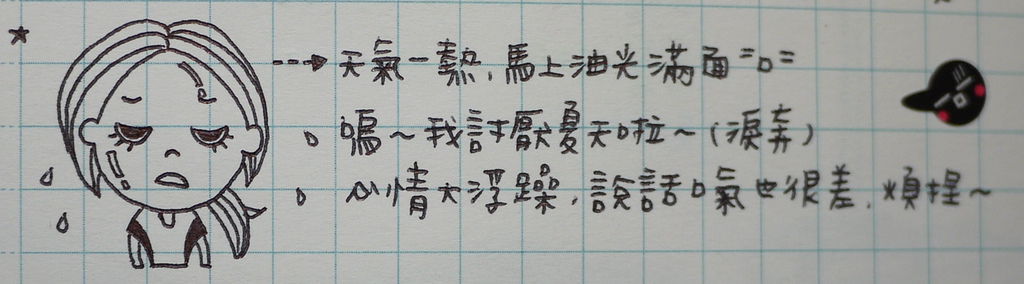 天氣一熱,馬上油光滿面=口=
嗚~我討厭夏天啦~(淚奔)
心情大浮躁,說話口氣也很差,煩捏~